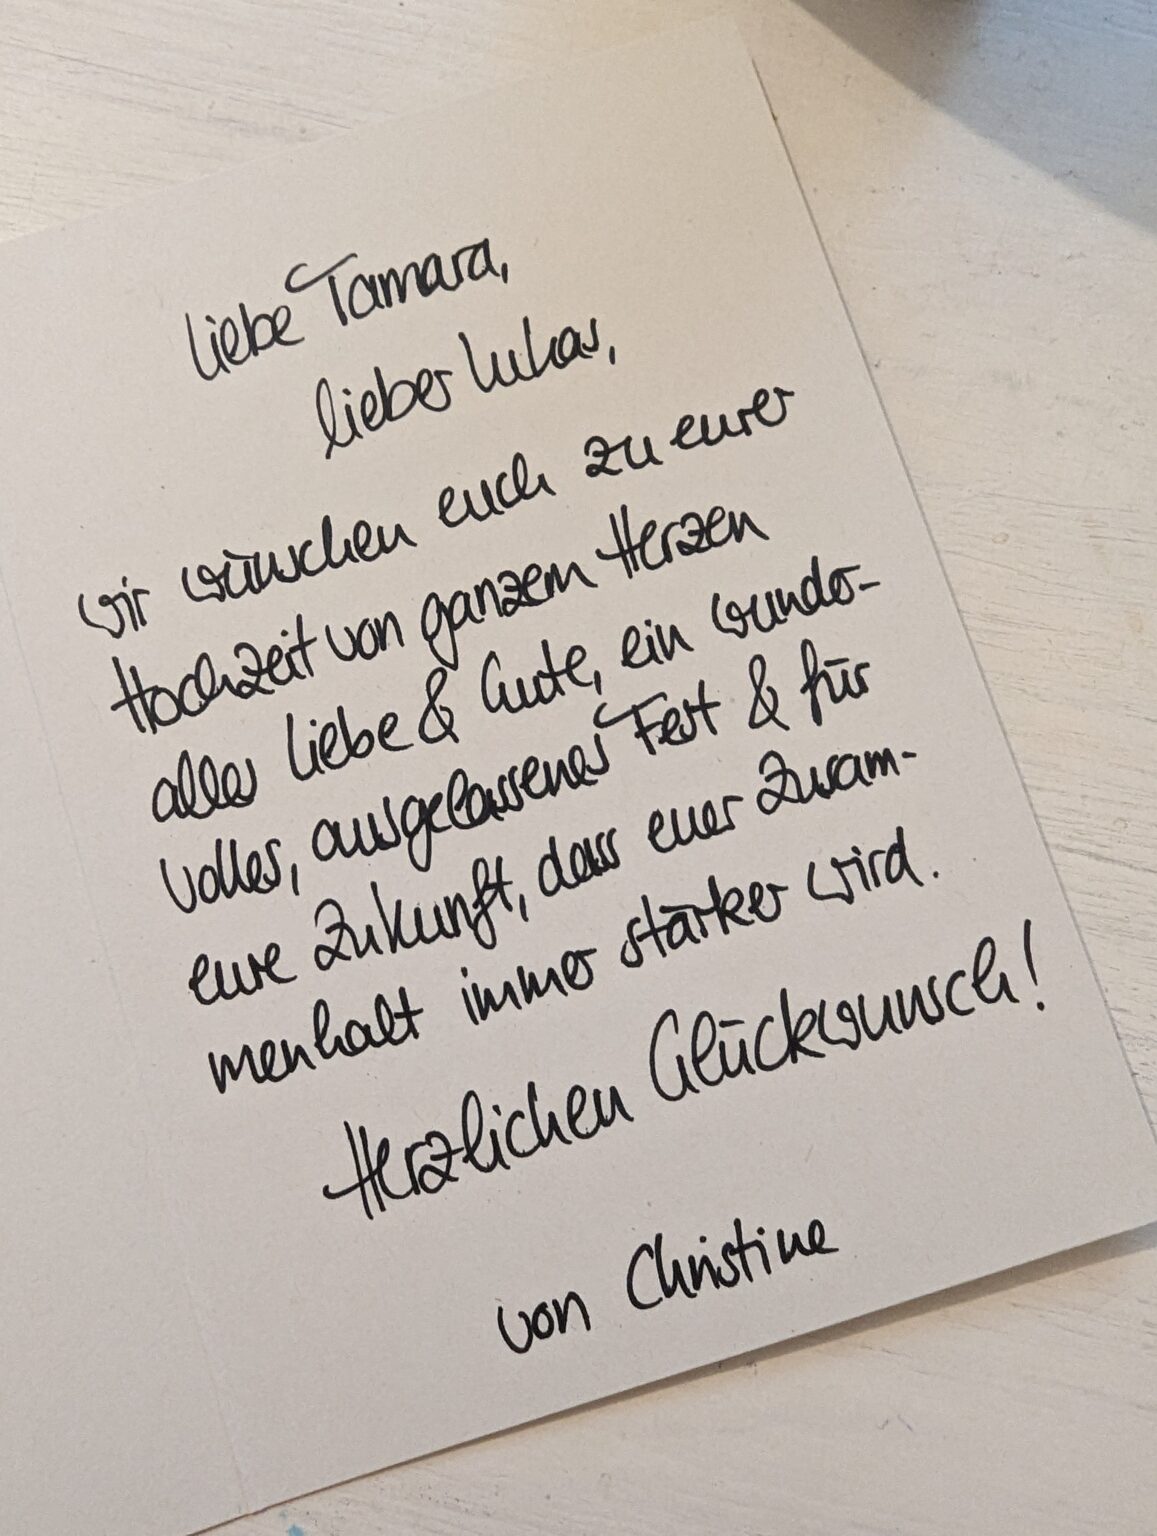 liebe Tamara,
lieber Lukas,
wir wünschen euch zu eurer
Hochzeit von ganzem Herzen
alles Liebe & Gute, ein wunder-
volles, ausgelassenes Fest & für
eure Zukunft, dass euer Zusam-
menhalt immer stärker wird.
Herzlichen Glückwunsch!
von Christine